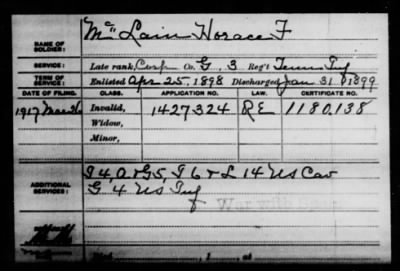 NAME OF SOLDIER: McLain Horace F
SERVICE: Late rank, Corp Co. G, 3 Reg't Tenn Inf
TERM OF SERVICE: Enlisted Apr 25, 1898 Discharged Jan 31, 1899
DATE OF FILING. CLASS. APPLICATION NO. LAW. CERTIFICATE NO.
1917 Mar 26 Invalid, 1427324 RE 1180,138
Widow,
Minor,
ADDITIONAL SERVICES: I 4, O & G 5, I 6 & L 14 US Cav
G, 4 US Inf
War with Spain
, 1 , at